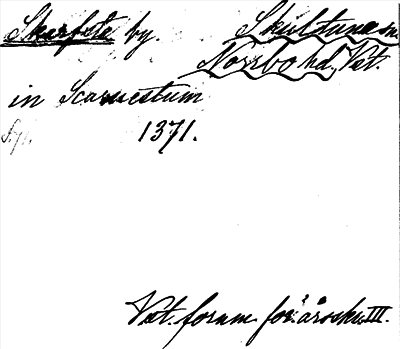 Skerfsta by. Skultuna sn.
Norrbo hd. Vst.
in Scaruestum
1371.
Väst. fornm. för. årsskr. III.